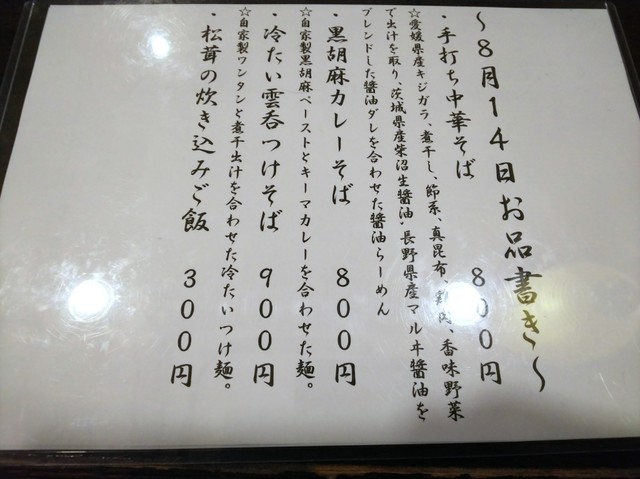 ～８月１４日お品書き～
・手打ち中華そば　８００円
☆愛媛県産キジガラ、煮干し、節系、真昆布、鶏肉、香味野菜
で出汁を取り、茨城県産柴沼生醤油・長野県産マルヰ醤油を
ブレンドした醤油ダレを合わせた醤油らーめん
・黒胡麻カレーそば　８００円
☆自家製黒胡麻ペーストとキーマカレーを合わせた麺。
・冷たい雲呑つけそば　９００円
☆自家製ワンタンと煮干出汁を合わせた冷たいつけ麺。
・松茸の炊き込みご飯　３００円